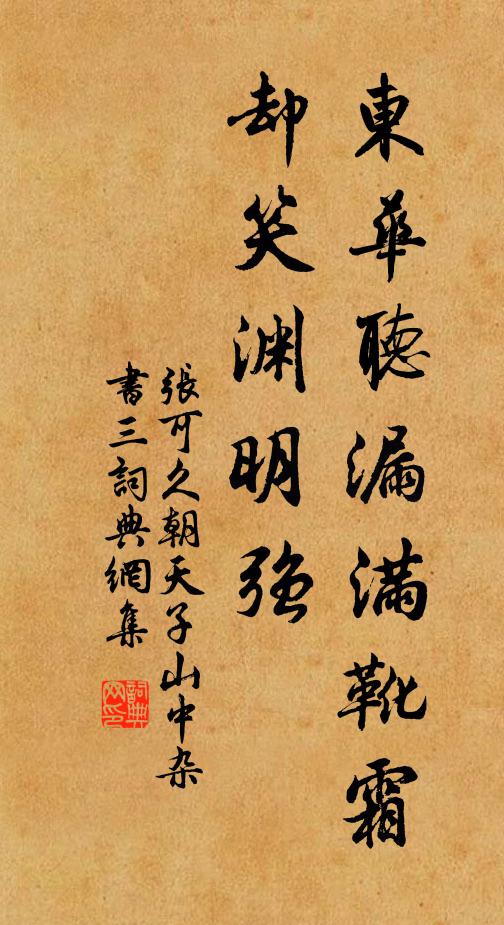 東華聽漏滿靴霜
却笑渊明強
張可久朝天子山中杂
書三詞典網集
詞典网印